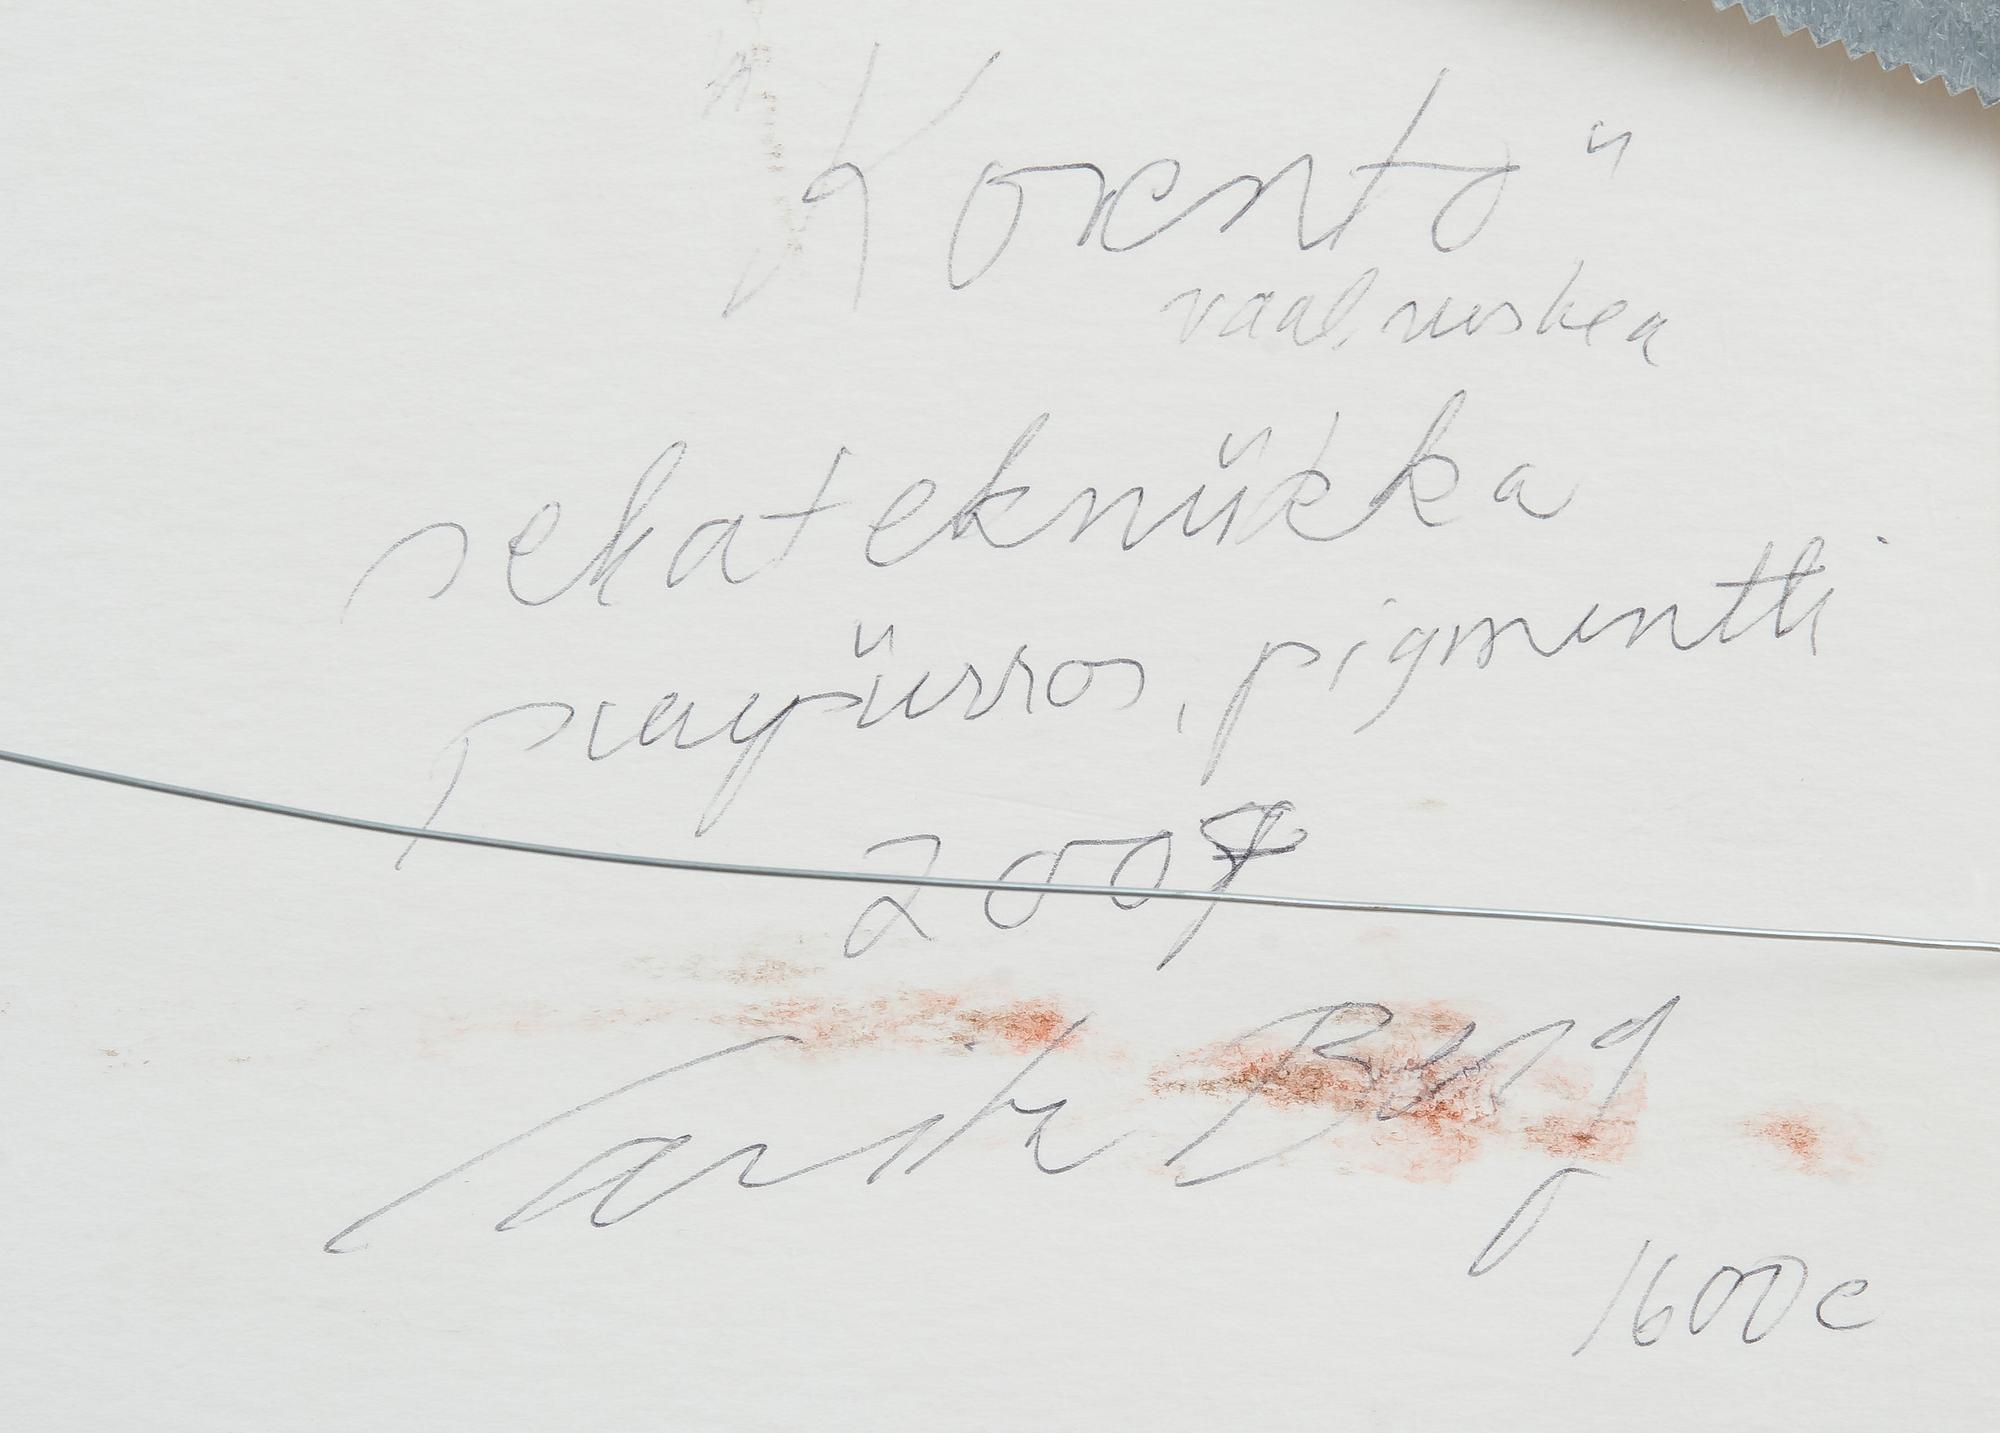 "Korento"
vaal. ruskea
sekatekniikka
piirros, pigmentti
200
Berg
1600 e